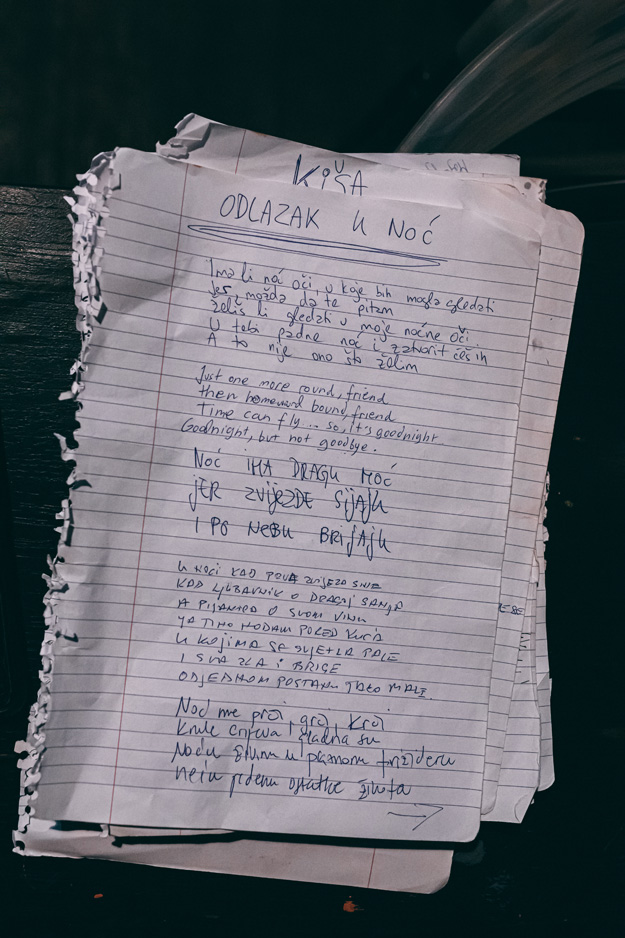 KIŠA
ODLAZAK U NOĆ
Ima li noć oči u koje bih mogla gledati
Jer možda da te pitam
želiš li gledati u moje noćne oči
U tebi padne noć i zatvorit ćeš ih
A to nije ono što želim
Just one more round, friend
then homeward bound, friend
Time can fly... so, it's goodnight
Goodnight, but not goodbye.
NOĆ IMA DRAGU MOĆ
JER ZVIJEZDE SIJAJU
I PO NEBU BRIJAJU
U NOĆI KAD ZVIJEZD SNE
KAD LJUBAVNIK O DRAGOJ SANJA
A PIJANAC O SVOM VINU
JA TIHO HODAM PORED KUĆA
U KOJIMA SE SVJETLA PALE
I SVA ZLA I BRIGE
ODJEDNOM POSTANU TAKO MALE.
Noć me
Krule crijeva gladna su
Noću u praznom frižideru
ostatke života